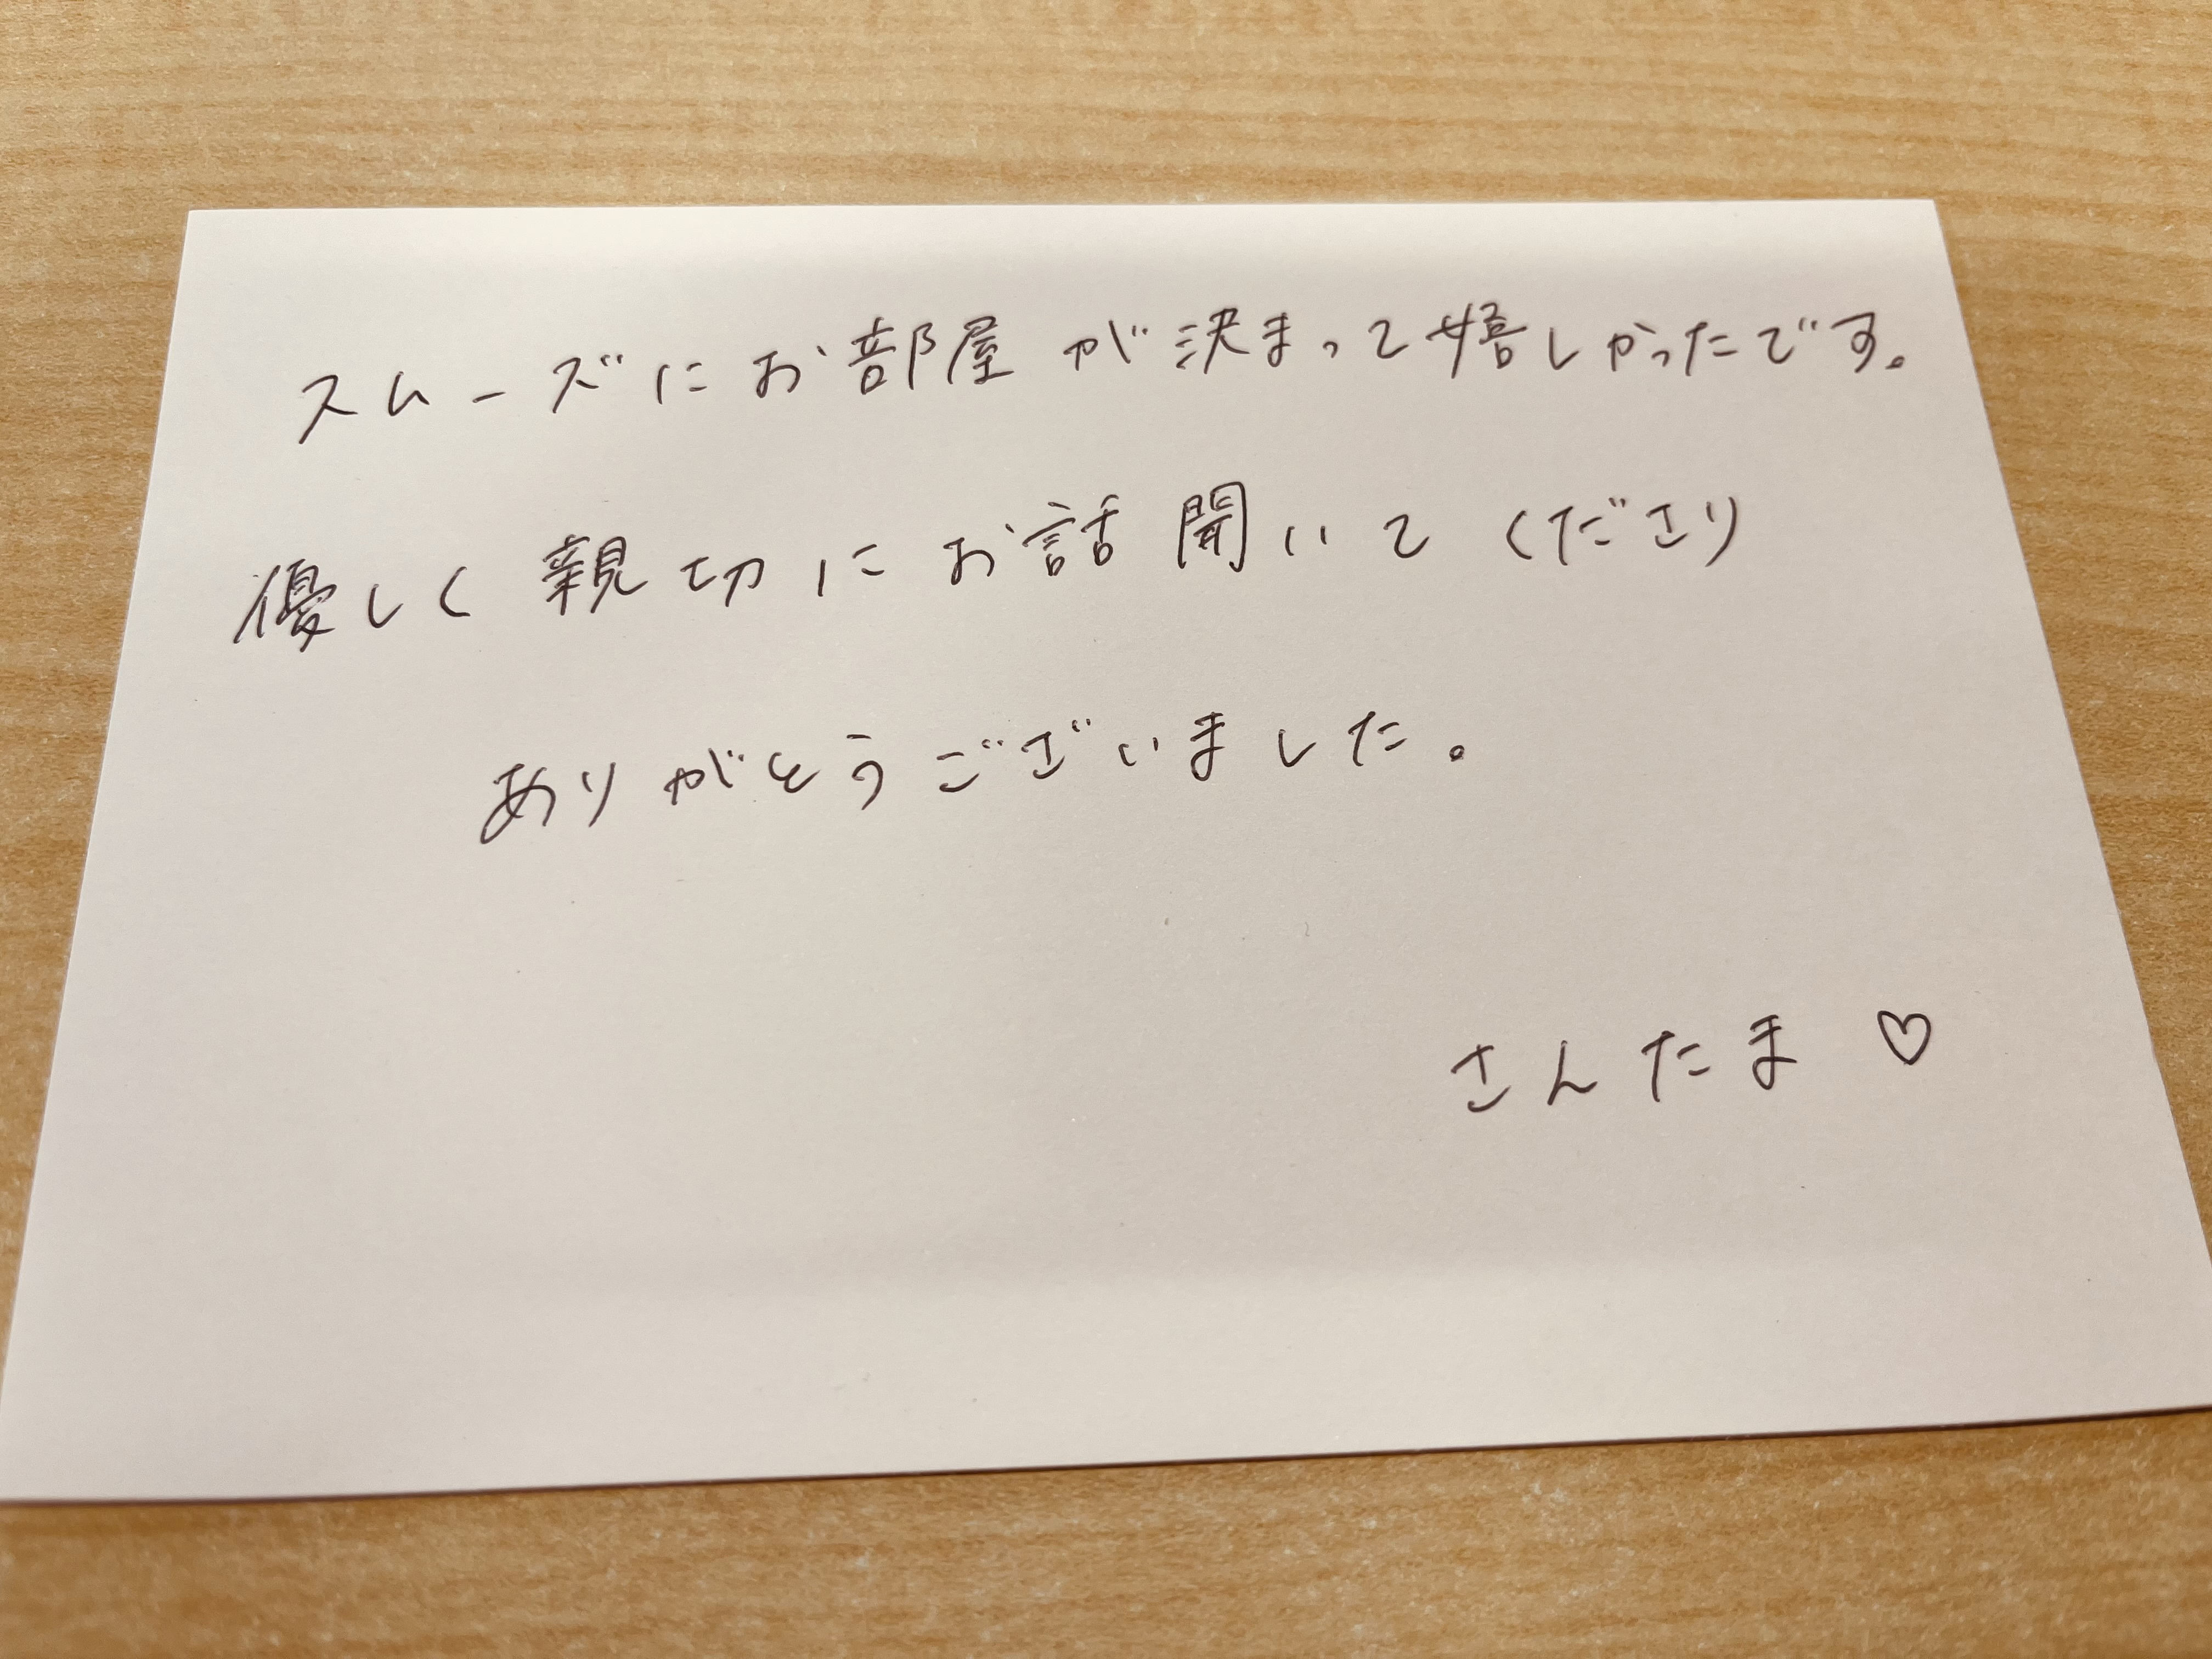 スムーズにお部屋が決まって嬉しかったです。
優しく親切にお話聞いてくださり
ありがとうございました。
さんたま♡